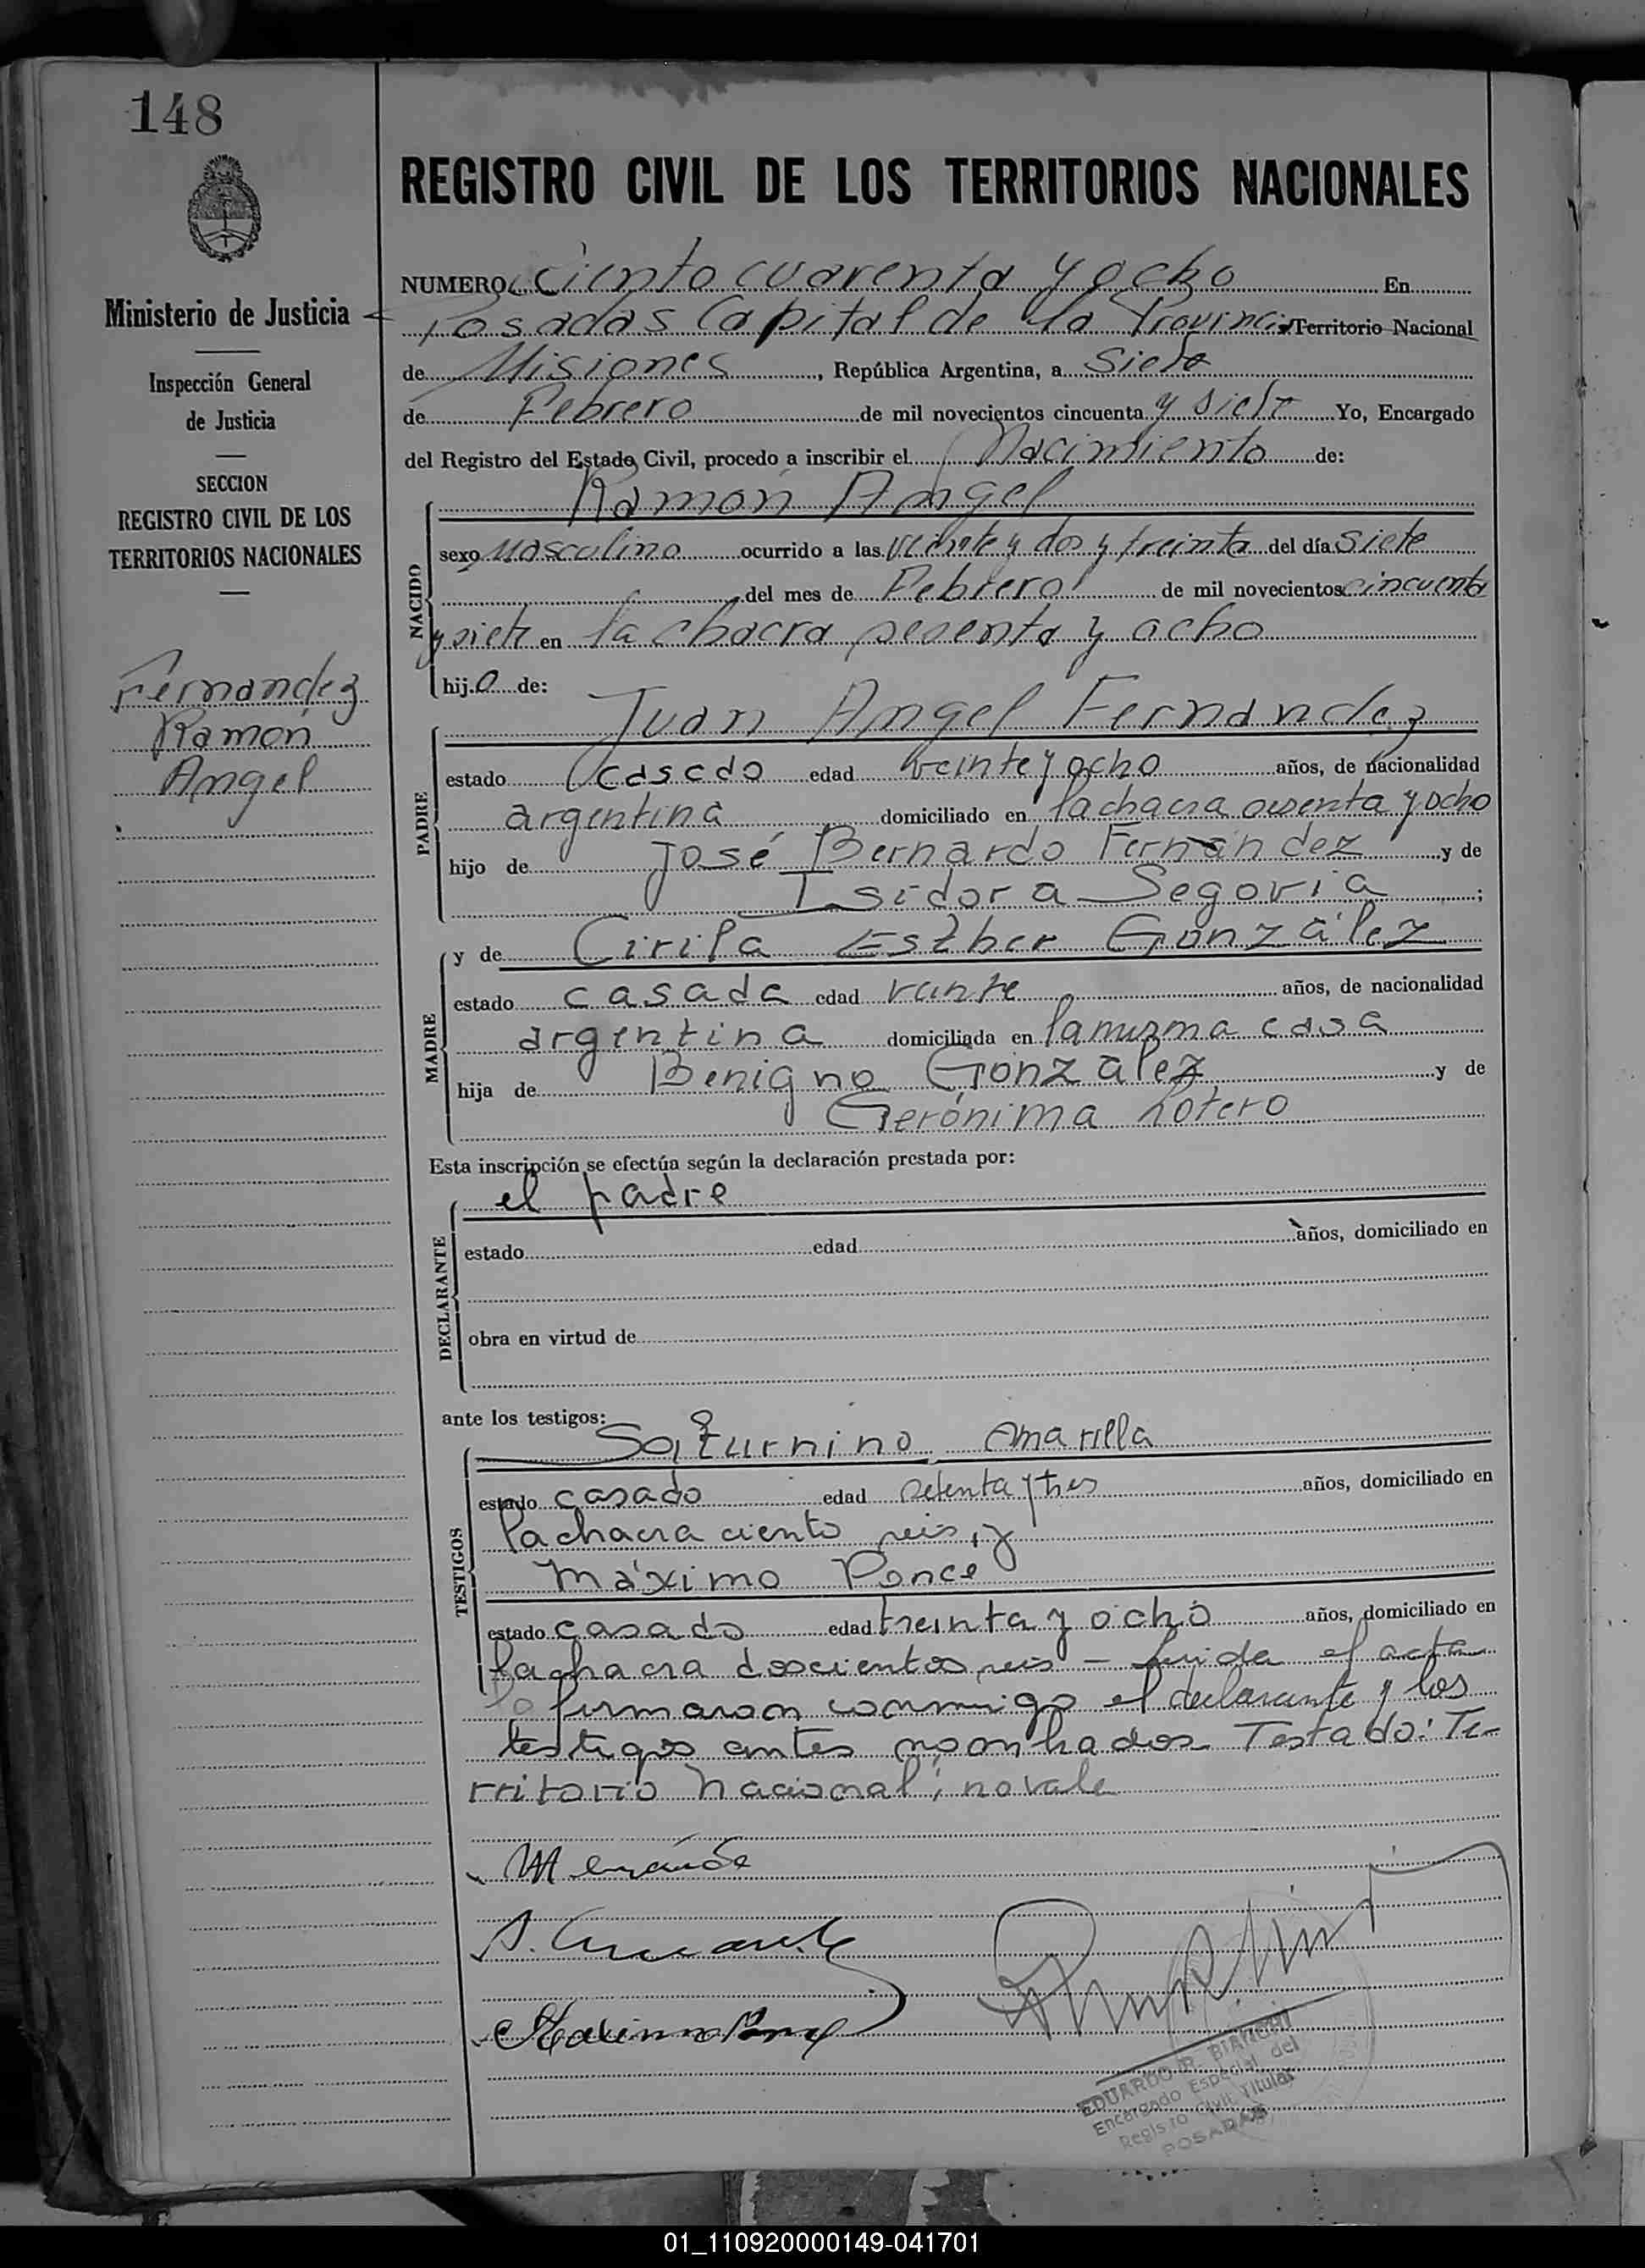 148
REGISTRO CIVIL DE LOS TERRITORIOS NACIONALES
Ministerio de Justicia
Inspección General
de Justicia
SECCION
REGISTRO CIVIL DE LOS
TERRITORIOS NACIONALES
Fernandez
Ramón
Angel
NUMERO Ciento cuarenta y ocho En
Posadas Capital de la Provincia Territorio Nacional
de Misiones, República Argentina, a Siete
de Febrero de mil novecientos cincuenta y siete Yo, Encargado
del Registro del Estado Civil, procedo a inscribir el Nacimiento de:
NACIDO
Ramón Angel
sexo Masculino ocurrido a las veinte y dos y treinta del día siete
del mes de Febrero de mil novecientos cincuenta
y siete en la chacra sesenta y ocho
hijo de:
PADRE
Juan Angel Fernandez
estado casado edad veinte y ocho años, de nacionalidad
argentina domiciliado en la chacra sesenta y ocho
hijo de José Bernardo Fernández y de
Isidora Segovia;
MADRE
y de Cirila Esther González
estado casada edad veinte años, de nacionalidad
argentina domiciliada en la misma casa
hija de Benigno González y de
Gerónima Lotero
Esta inscripción se efectúa según la declaración prestada por:
DECLARANTE
el padre
estado edad años, domiciliado en
obra en virtud de
ante los testigos:
TESTIGOS
Saturnino Amarilla
estado casado edad setenta y tres años, domiciliado en
la chacra ciento seis, y
Máximo Ponce
estado casado edad treinta y ochó años, domiciliado en
la chacra doscientos seis - leida el acta
la firmaron conmigo el declarante y los
testigos antes nombrados - Testado: Te-
rritorio Nacional; no vale
EDUARDO R. BIANCHI
Encargado Especial del
Registro Civil Titular
POSADAS
01_110920000149-041701